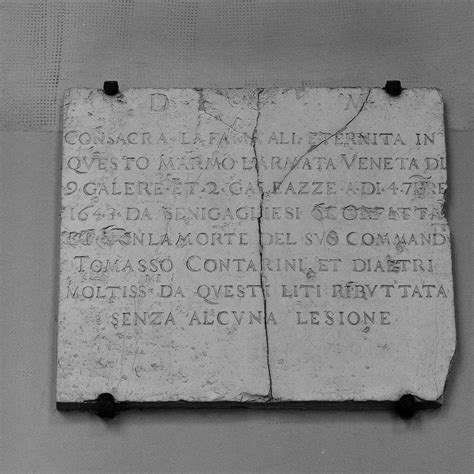 D M
CONSACRA LA FAMA ALL ETERNITA IN
QVESTO MARMO L'ARMATA VENETA DI
9 GALERE ET 2 GALEAZZE A DI 4 7BRE
1643 DA SENIGAGLIESI SCONFITTA
ET CON LA MORTE DEL SVO COMMAND
TOMASSO CONTARINI ET DI ALTRI
MOLTISS MI DA QVESTI LITI RIBVTTATA
SENZA ALCVNA LESIONE